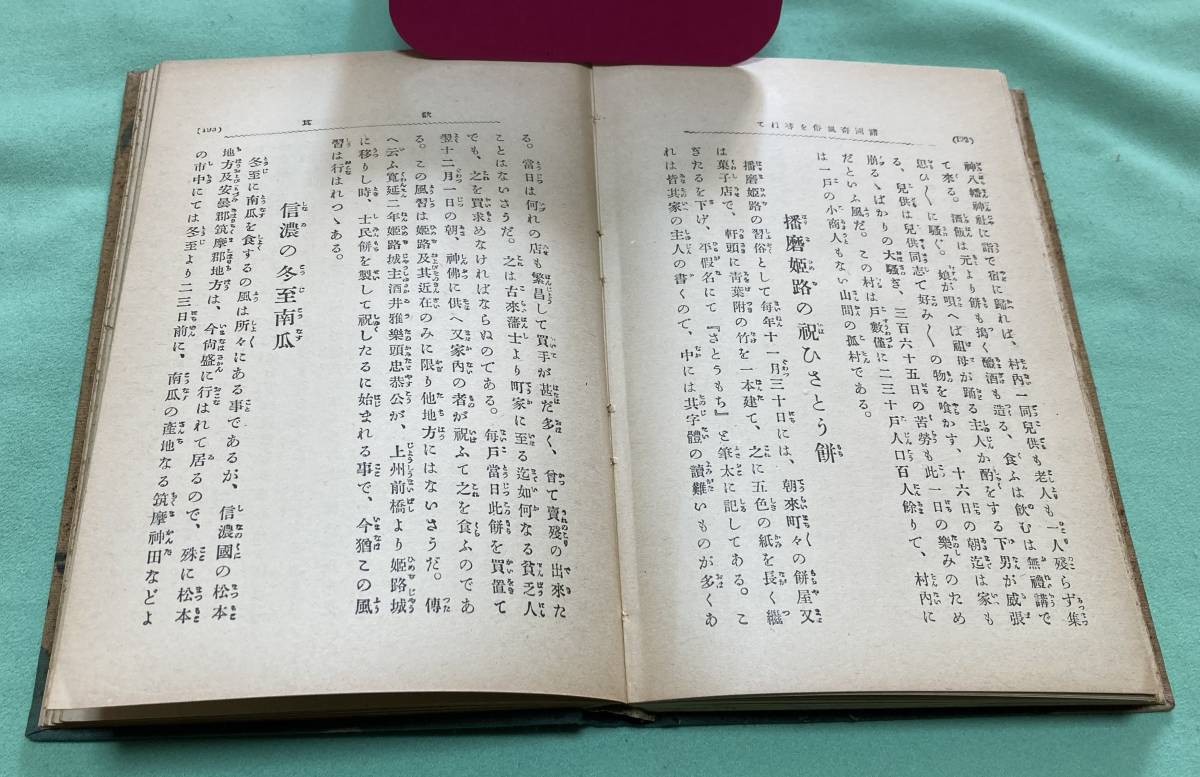 (192)
諸國奇風俗を尋ねて
神八幡神社に詣で宿に歸れば、村內一同兒供も老人も一人殘らず集
て來る。酒飯は元より餅も搗く醴酒も造る、食ふは飮むは無禮講で
思ひ〱に騷ぐ。娘が唄へば祖母が踊る主人が酌をする下男が威張
る、兒供は兒供同志で好み〱の物を喰かす、十六日の朝迄は家も
崩るゝばかりの大騷ぎ、三百六十五日の苦勞も此一日の樂みのため
だといふ風だ。この村は戶數僅に二三十戶人口百人餘りて、村內に
は一戶の小商人もない山間の孤村である。
播磨姬路の祝ひさとう餅
播磨姬路の習俗として每年十一月三十日には、朝來町々〱の餅屋又
は菓子店で、軒頭に靑葉附の竹を一本建て、之に五色の紙を長く繼
ぎたるを下げ、平假名にて『さとうもち』と筆太に記してある。こ
れは皆其家の主人の書くので、中には其字體の讀難いものが多くあ
飮食
(193)
る。當日は何れの店も繁昌して買手が甚だ多く、曾て賣殘の出來た
ことはないさうだ。之は古來藩士より町家に至る迄如何なる貧乏人
でも、之を買求めなければならぬのである。每戶當日此餅を買置て
翌十二月一日の朝、神佛に供へ又家內の者が祝ふて之を食ふのであ
る。この風習は姬路及其近在のみに限り他地方にはないさうだ。傳
へ云ふ寬延二年姬路城主酒井雅樂頭忠恭公が、上州前橋より姬路城
に移りし時、士民餅を製して祝したるに始まれる事で、今猶この風
習は行はれつゝある。
信濃の冬至南瓜
冬至に南瓜を食するの風は所々にある事であるが、信濃國の松本
地方及安曇郡筑摩郡地方は、今尙盛に行はれて居るので、殊に松本
の市中にては冬至より二三日前に、南瓜の產地なる筑摩神田などよ